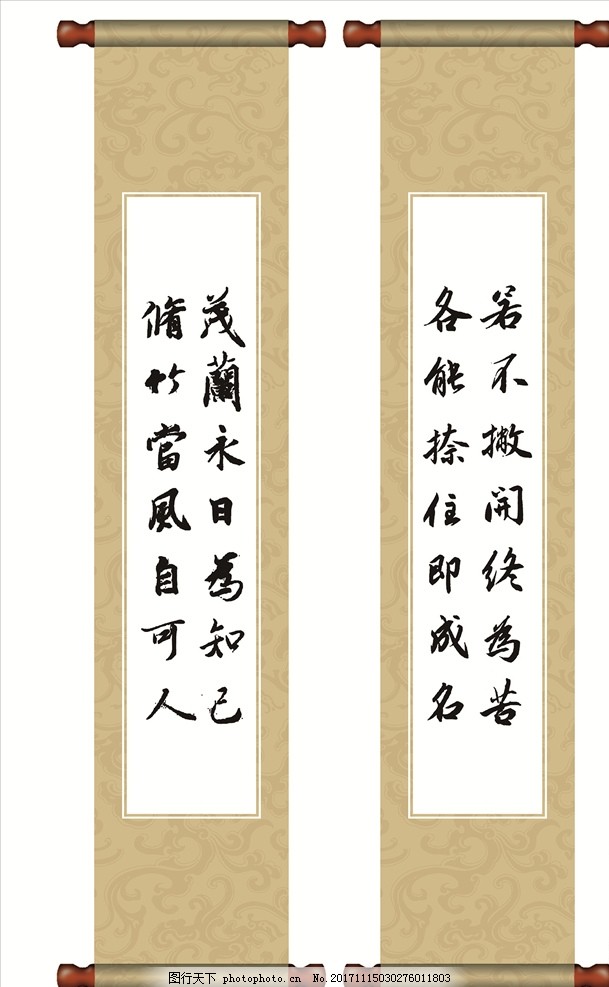 若不撇開終為苦
各能捺住即成名
茂蘭永日為知己
脩竹當風自可人
图行天下 photophoto.cn No.20171115030276011803